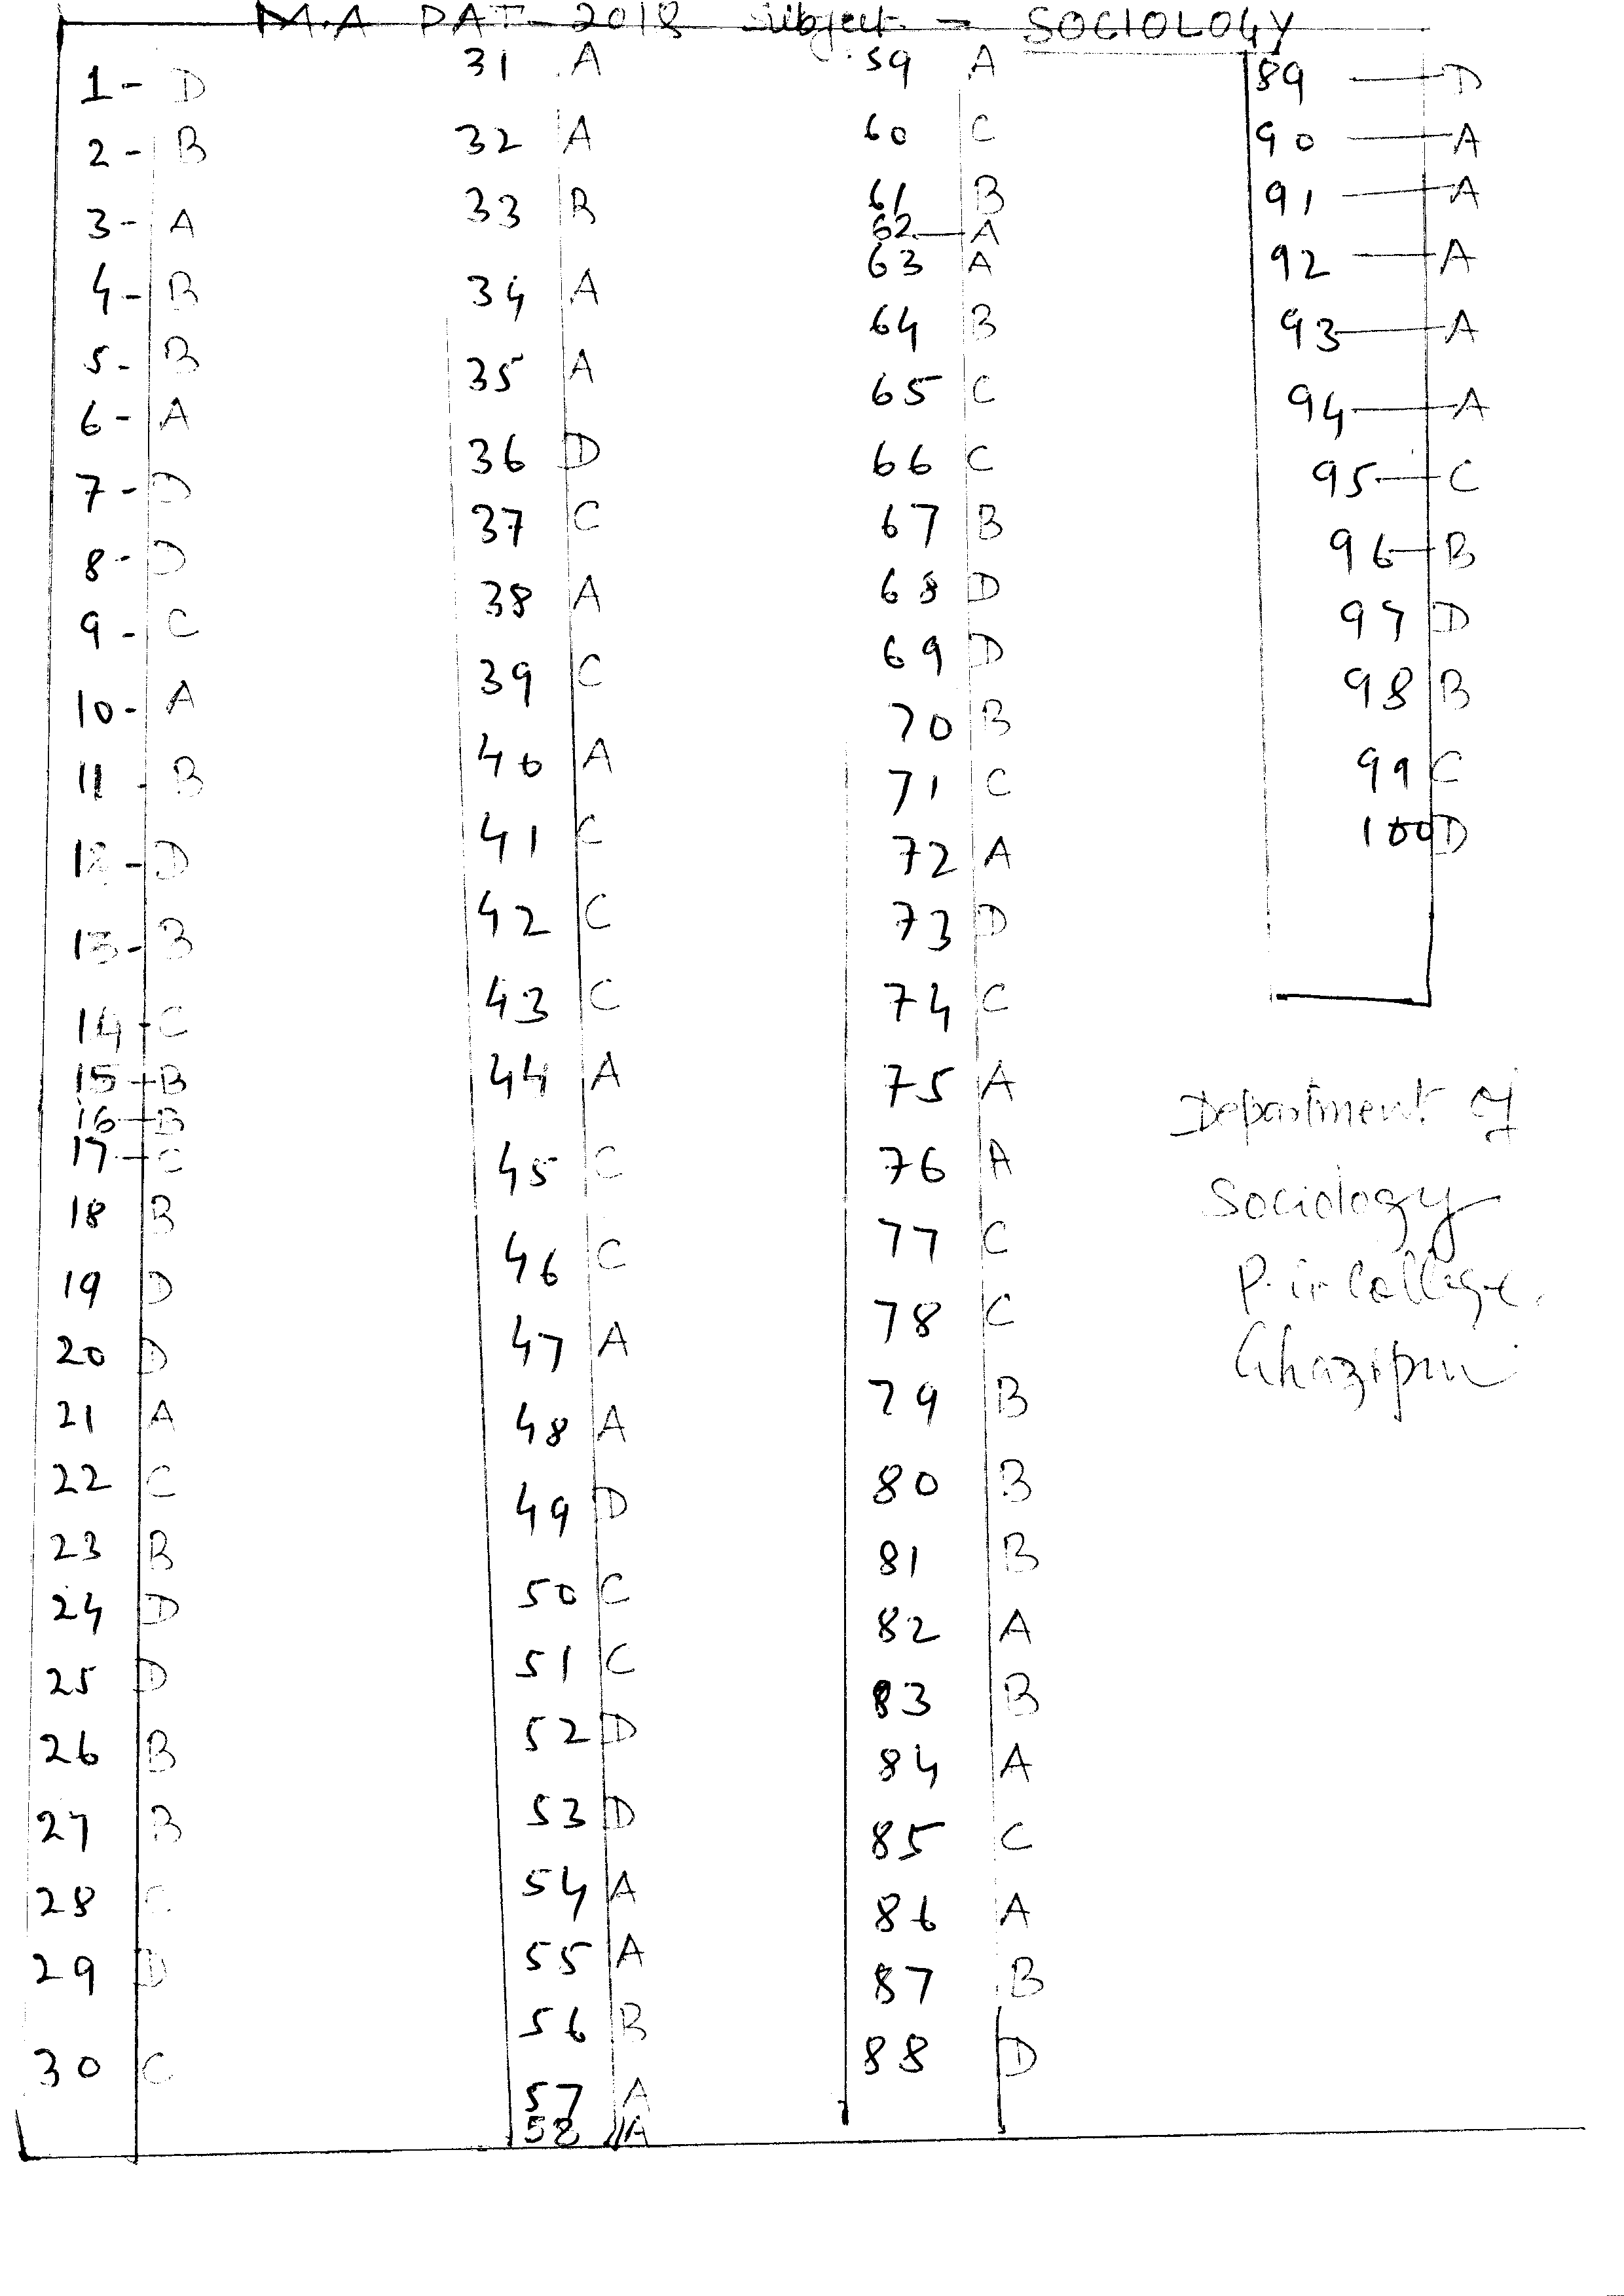 M.A PAT-2018 Subject - SOCIOLOGY
1- D
2- B
3- A
4- B
5- B
6- A
7- D
8- D
9- C
10- A
11- B
12- D
13- B
14- C
15- B
16- B
17- C
18 B
19 D
20 D
21 A
22 C
23 B
24 D
25 D
26 B
27 B
28 C
29 D
30 C
31 A
32 A
33 B
34 A
35 A
36 D
37 C
38 A
39 C
40 A
41 C
42 C
43 C
44 A
45 C
46 C
47 A
48 A
49 D
50 C
51 C
52 D
53 D
54 A
55 A
56 B
57 A
58 A
59 A
60 C
61 B
62 - A
63 A
64 B
65 C
66 C
67 B
68 D
69 D
70 B
71 C
72 A
73 D
74 C
75 A
76 A
77 C
78 C
79 B
80 B
81 B
82 A
83 B
84 A
85 C
86 A
87 B
88 D
89 - D
90 - A
91 - A
92 - A
93 - A
94 - A
95 - C
96 - B
97 D
98 B
99 C
100 D
Department of
Sociology
P.G College,
Ghazipur